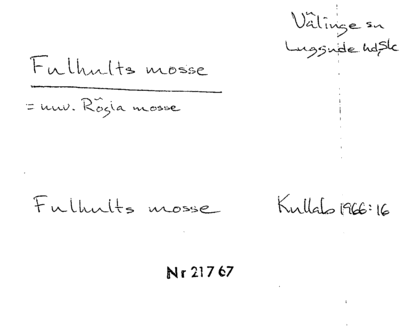 Välinge sn
Luggude hd, Sk
Fulhults mosse
= nuv. Rögla mosse
Fulhults mosse
Kullabo 1966:16
Nr 21767